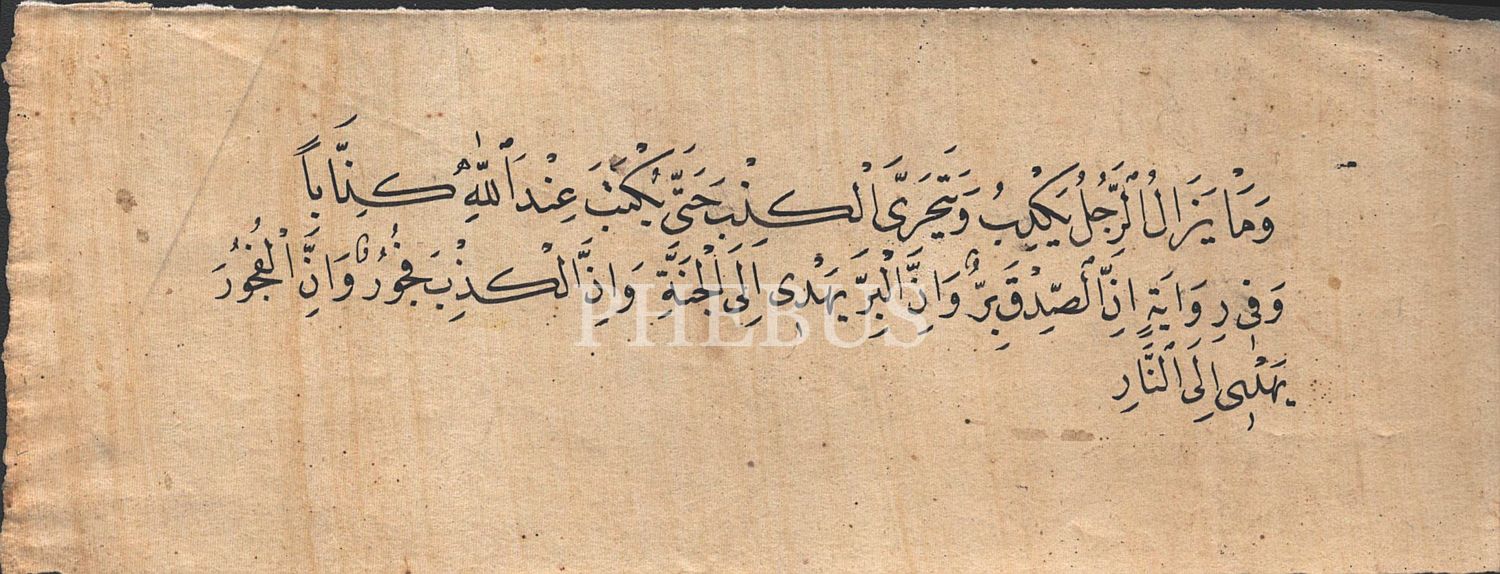 وَمَا يَزَالُ ٱلرَّجُلُ يَكْذِبُ وَيَتَحَرَّىَ الْكِذْبَ حَتَّى يُكْتَبَ عِنْدَ ٱللّٰهِ كَذَّاباً
وَفِى رِوَايَةٍ اِنَّ ٱلصِّدْقَ بِرٌّ وَاِنَّ الْبِرَّ يَهْدِى اِلَى الْجَنَّةِ وَاِنَّ الْكِذْبَ فُجُورٌ وَاِنَّ الْفُجُورَ
يَهْدِى اِلَى ٱلنَّارِ
PHEBUS